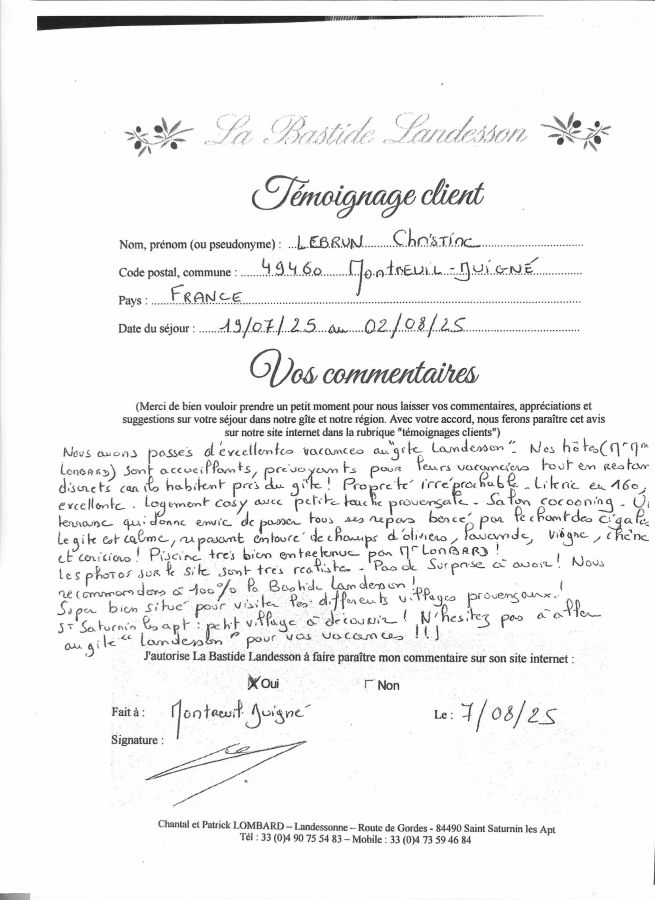 La Bastide Landesson
Témoignage client
Nom, prénom (ou pseudonyme) : LEBRUN Christine
Code postal, commune : 49460 MONTREUIL-JUIGNÉ
Pays : FRANCE
Date du séjour : 19/07/25 au 02/08/25
Vos commentaires
(Merci de bien vouloir prendre un petit moment pour nous laisser vos commentaires, appréciations et
suggestions sur votre séjour dans notre gîte et notre région. Avec votre accord, nous ferons paraître cet avis
sur notre site internet dans la rubrique "témoignages clients")
Nous avons passés d'excellentes vacances au "gîte Landesson". Nos hôtes (Mr Mme
LOMBARD) sont accueillants, prévoyants pour leurs vacanciers tout en restan
discrets car ils habitent près du gîte ! Propreté irréprochable. Literie en 160,
excellente. Logement cosy avec petite touche provençale. Salon cocooning. U
terrasse qui donne envie de passer tous ses repas bercé par le chant des cigale
Le gîte est calme, reposant entouré de champs d'oliviers, lavande, vigne, chêne
et cerisiers ! Piscine très bien entretenue par Mr LOMBARD !
Les photos sur le site sont très réalistes. Pas de surprise à avoir ! Nous
recommandons à 100% la Bastide Landesson !
Super bien situé pour visiter les différents villages provençaux !
St Saturnin les apt : petit village à découvrir ! N'hésitez pas à aller
au gîte "Landesson" pour vos vacances !!!
J'autorise La Bastide Landesson à faire paraître mon commentaire sur son site internet :
Oui Non
Fait à : Montreuil Juigné Le : 7/08/25
Signature :
Chantal et Patrick LOMBARD – Landessonne – Route de Gordes - 84490 Saint Saturnin les Apt
Tél : 33 (0)4 90 75 54 83 – Mobile : 33 (0)4 73 59 46 84